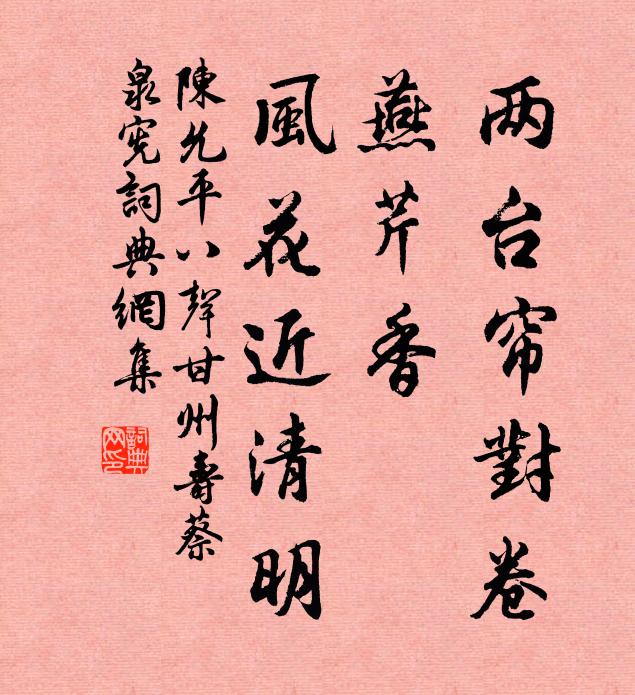 两台帘對卷
燕芹香
風花近清明
陳允平八聲甘州壽蔡
泉憲詞典網集
詞典
网印